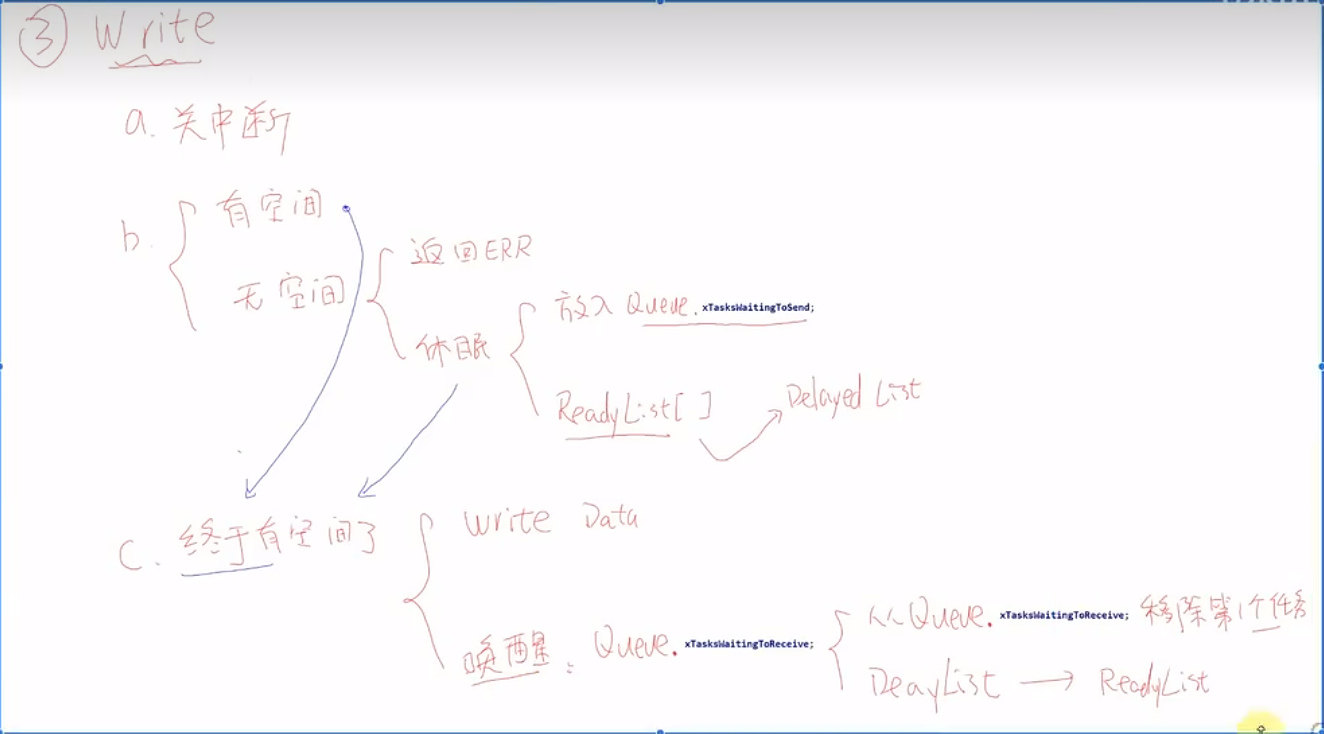 ③ Write
a. 关中断
b. 有空间
无空间
返回ERR
休眠
放入 Queue. xTasksWaitingToSend;
ReadyList[ ]
Delayed List
c. 终于有空间了
Write Data
唤醒: Queue. xTasksWaitingToReceive;
从Queue. xTasksWaitingToReceive; 移除第1个任务
DeayList → ReadyList